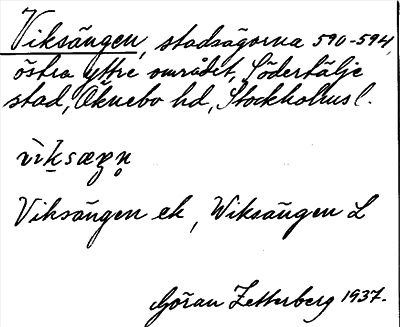 Viksängen, stadsägorna 590-594,
östra yttre området, Södertälje
stad, Öknebo hd, Stockholms l.
Viksängen ek, Wiksängen L
Göran Zetterberg 1937.